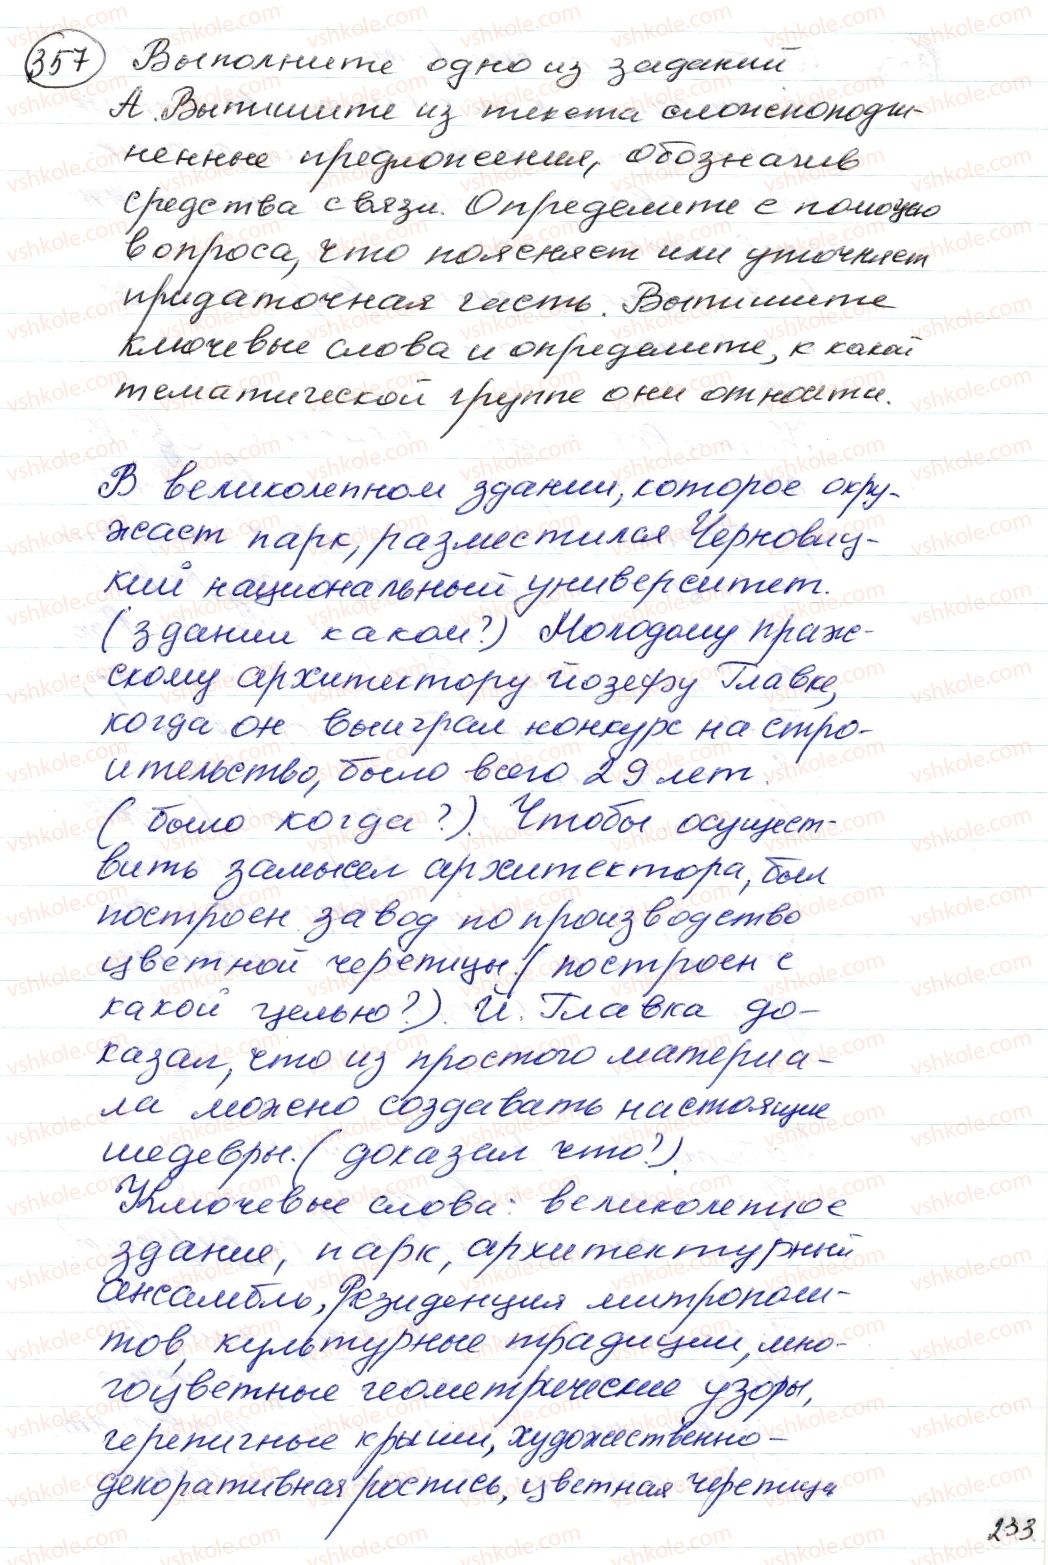 357 Выполните одно из заданий
А. Выпишите из текста сложноподчи-
ненные предложения, обозначив
средства связи. Определите с помощью
вопроса, что поясняет или уточняет
придаточная часть. Выпишите
ключевые слова и определите, к какой
тематической группе они относити.
В великолепном здании, которое окру-
жает парк, разместился Черновиц-
кий национальный университет.
(здании каком?) Молодому праж-
скому архитектору Йозефу Главке,
когда он выиграл конкурс на стро-
ительство, было всего 29 лет.
(было когда?). Чтобы осущест-
вить замысел архитектора, был
построен завод по производство
цветной черепицы. (построен с
какой целью?). Й. Главка до-
казал, что из простого материа-
ла можно создавать настоящие
шедевры. (доказал что?).
Ключевые слова: великолепное
здание, парк, архитектурный
ансамбль, Резиденция митрополи-
тов, культурные традиции, мно-
гоцветные геометрические узоры,
черепичные крыши, художественно-
декоративная роспись, цветная черепица
233